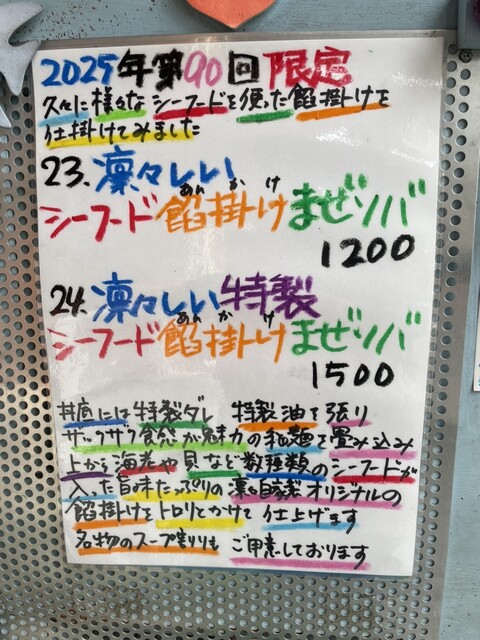 2025年第90回限定
久々に様々なシーフードを使った餡掛けを
仕掛けてみました
23.凛々しい
あんかけ
シーフード餡掛けまぜソバ
1200
24.凛々しい特製
あんかけ
シーフード餡掛けまぜソバ
1500
丼底には特製ダレ 特製油を張り
ザックザク食感が魅力の乱麺を畳み込み
上から海老や貝など数種類のシーフードが
入った旨味たっぷりの凛自家製オリジナルの
餡掛けをトロリとかけて仕上げます
名物のスープ割りもご用意しております